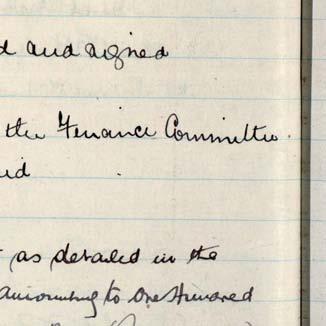 and signed
the Finance Committee.
as detailed in the
amounting to One Hundred